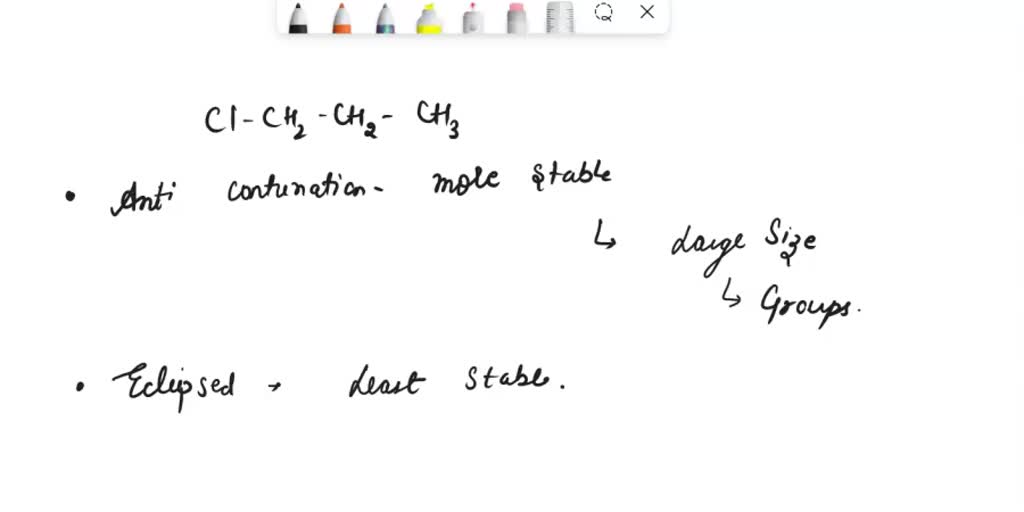 Cl-CH2-CH2-CH3
• Anti conformation - more stable
↳ Large Size
↳ Groups.
• Eclipsed → Least Stable.